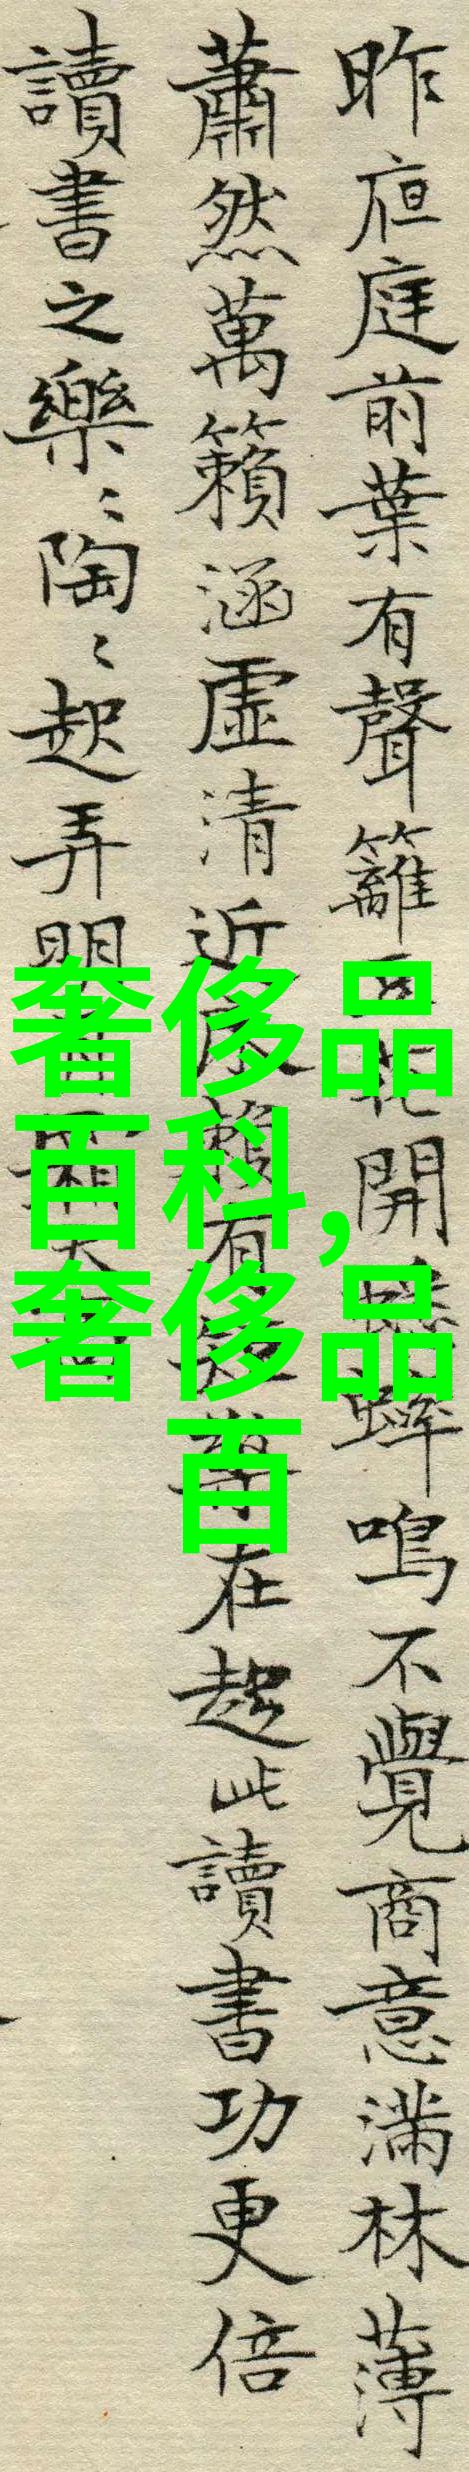 昨亱庭前葉有聲籬豆花開蟋蟀鳴不覺商意滿林薄
蕭然萬籟涵虛清近床賴有短檠在趂此讀書功更倍
讀書之樂〻陶〻起弄明月霜天高
奢侈品
百科,
奢侈品
百